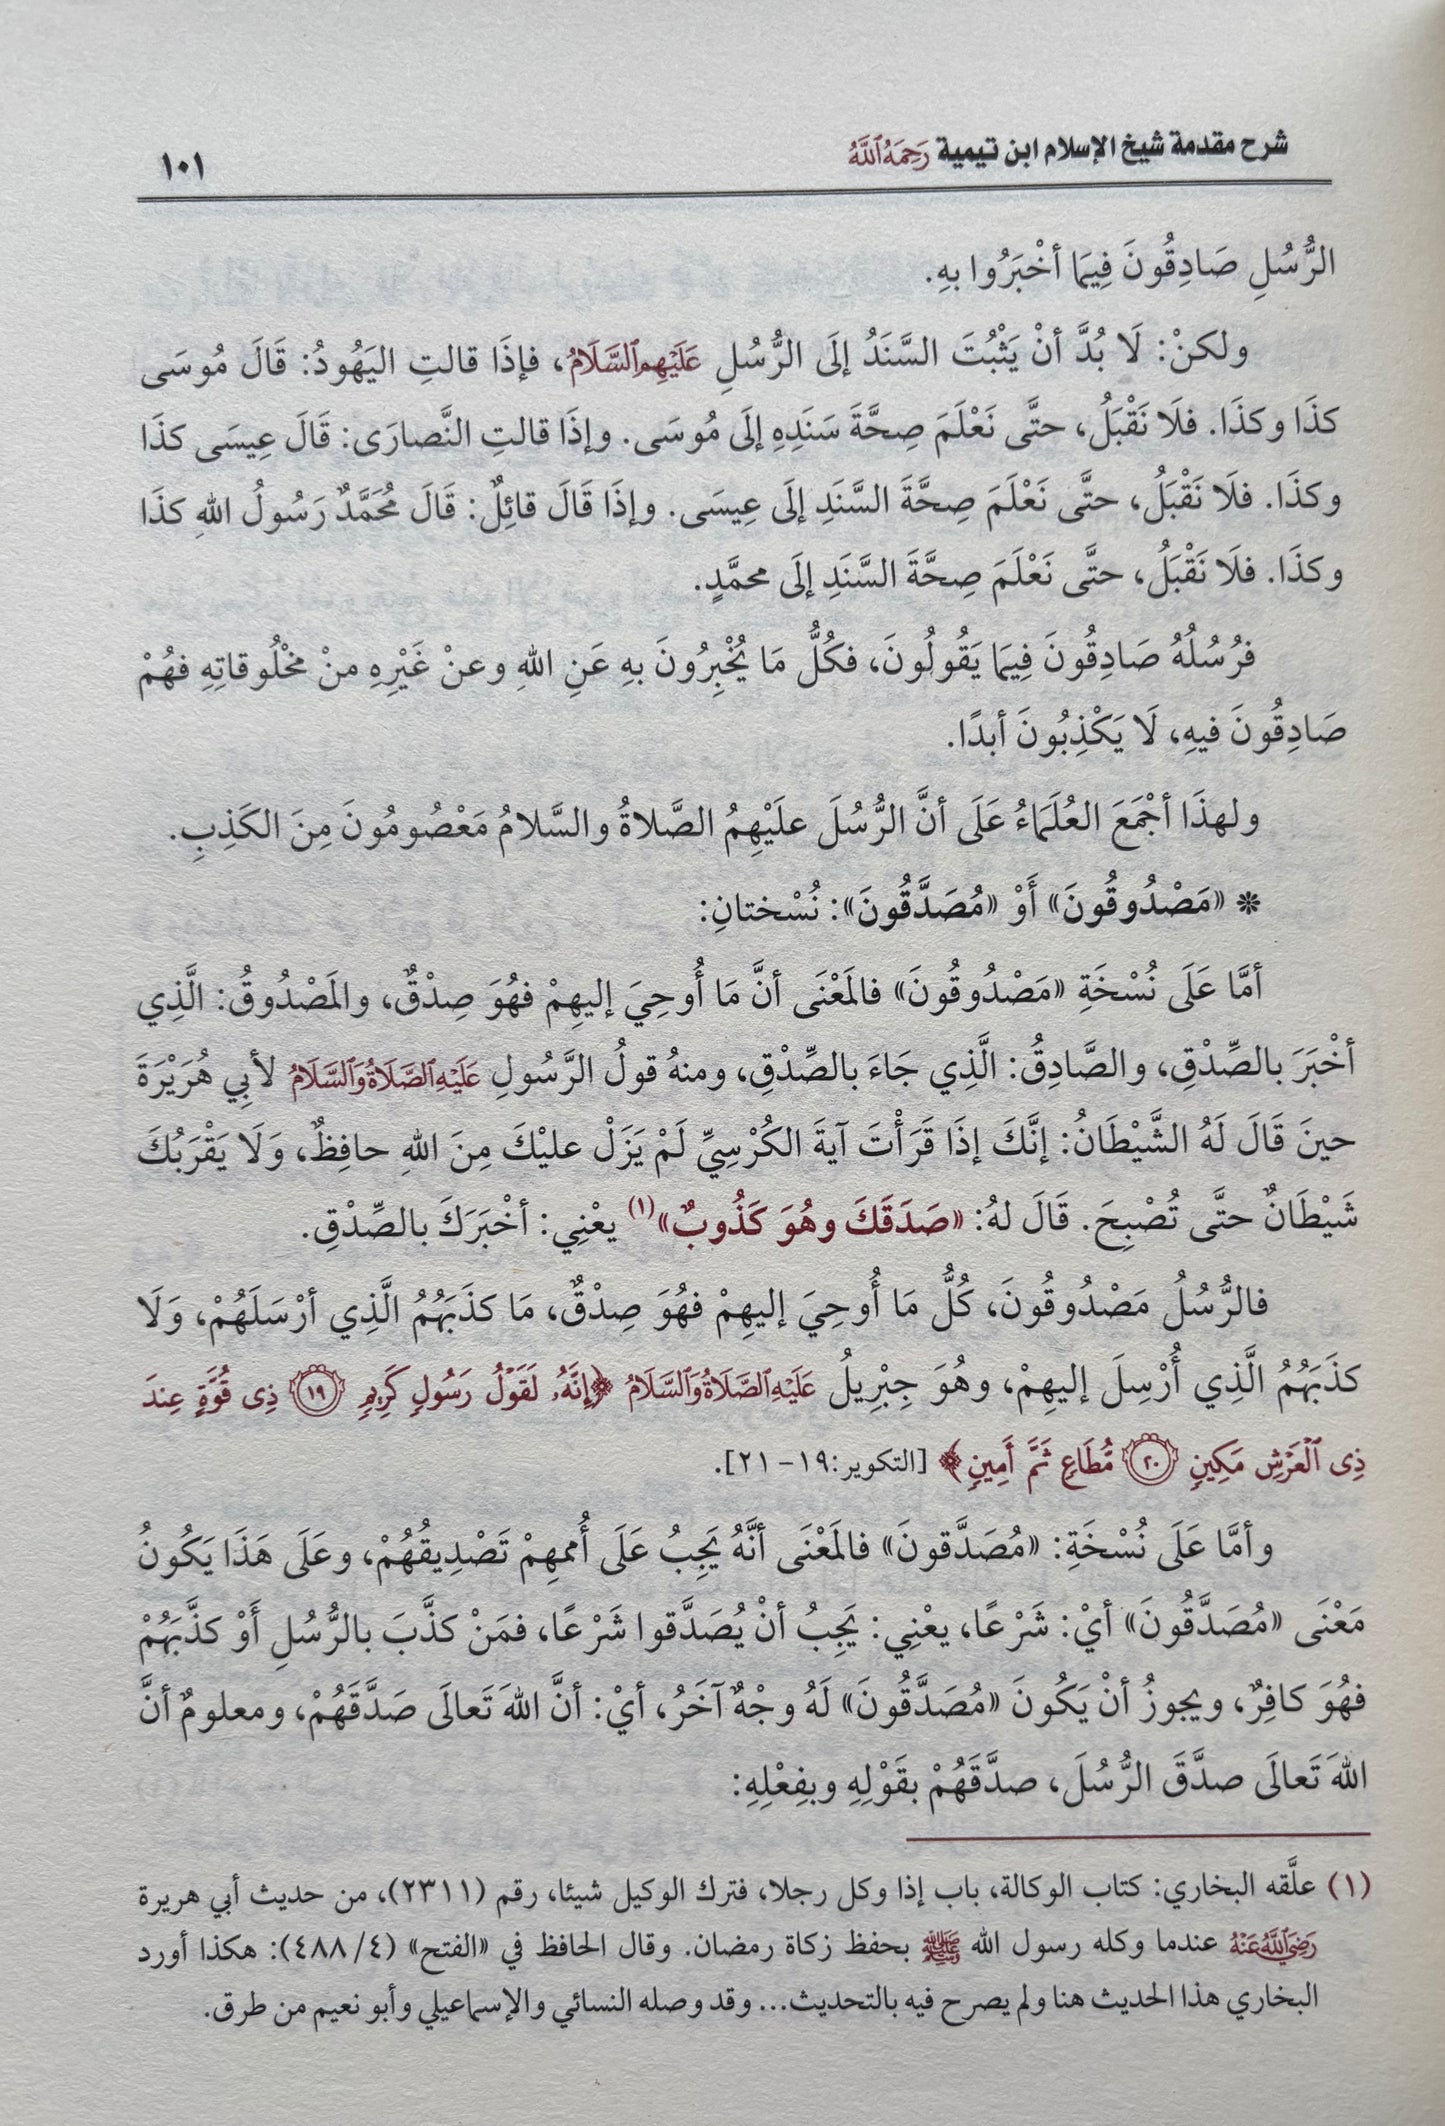 شرح مقدمة شيخ الإسلام ابن تيمية رَحِمَهُ ٱللَّهُ
١٠١
الرُّسُلِ صَادِقُونَ فِيمَا أخْبَرُوا بهِ.
ولكنْ: لَا بُدَّ أنْ يَثْبُتَ السَّنَدُ إلَى الرُّسُلِ عَلَيْهِم ٱلسَّلَامُ، فإذَا قالتِ اليَهُودُ: قَالَ مُوسَى
كذَا وكذَا. فلَا نَقْبَلُ، حتَّى نَعْلَمَ صِحَّةَ سَنَدِهِ إلَى مُوسَى. وإذَا قالتِ النَّصارَى: قَالَ عِيسَى كذَا
وكذَا. فلَا نَقْبَلُ، حتَّى نَعْلَمَ صِحَّةَ السَّنَدِ إلَى عِيسَى. وإذَا قَالَ قائِلٌ: قَالَ مُحَمَّدٌ رَسُولُ اللهِ كذَا
وكذَا. فلَا نَقْبَلُ، حتَّى نَعْلَمَ صِحَّةَ السَّنَدِ إلَى محمَّدٍ.
فرُسُلُهُ صَادِقُونَ فِيمَا يَقُولُونَ، فكُلُّ مَا يُخْبِرُونَ بهِ عَنِ اللهِ وعنْ غَيْرِهِ منْ مخْلُوقاتِهِ فهُمْ
صَادِقُونَ فيهِ، لَا يَكْذِبُونَ أبدًا.
ولهذَا أجْمَعَ العُلَمَاءُ عَلَى أنَّ الرُّسُلَ علَيْهِمُ الصَّلاةُ والسَّلامُ مَعْصُومُونَ مِنَ الكَذِبِ.
❇ «مَصْدُوقُونَ» أَوْ «مُصَدَّقُونَ»: نُسْختانِ:
أمَّا عَلَى نُسْخَةِ «مَصْدُوقُونَ» فالمَعْنَى أنَّ مَا أُوحِيَ إليهِمْ فهُوَ صِدْقٌ، والمَصْدُوقُ: الَّذِي
أخْبَرَ بالصِّدْقِ، والصَّادِقُ: الَّذِي جَاءَ بالصِّدْقِ، ومنهُ قولُ الرَّسُولِ عَلَيْهِ ٱلصَّلَاةُ وَٱلسَّلَامُ لأبِي هُرَيْرَةَ
حينَ قَالَ لَهُ الشَّيْطَانُ: إنَّكَ إذَا قَرَأْتَ آيةَ الكُرْسِيِّ لَمْ يَزَلْ عليْكَ مِنَ اللهِ حافِظٌ، وَلَا يَقْرَبُكَ
شَيْطَانٌ حتَّى تُصْبِحَ. قَالَ لهُ: «صَدَقَكَ وهُوَ كَذُوبٌ»(١) يعْنِي: أخْبَرَكَ بالصِّدْقِ.
فالرُّسُلُ مَصْدُوقُونَ، كُلُّ مَا أُوحِيَ إليهِمْ فهُوَ صِدْقٌ، مَا كذَبَهُمُ الَّذِي أرْسَلَهُمْ، وَلَا
كذَبَهُمُ الَّذِي أُرْسِلَ إليهِمْ، وهُوَ جِبْرِيلُ عَلَيْهِ ٱلصَّلَاةُ وَٱلسَّلَامُ ﴿إِنَّهُۥ لَقَوْلُ رَسُولٍ كَرِيمٍ ۝١٩ ذِى قُوَّةٍ عِندَ
ذِى ٱلْعَرْشِ مَكِينٍ ۝٢٠ مُّطَاعٍ ثَمَّ أَمِينٍ﴾ [التكوير:١٩-٢١].
وأمَّا عَلَى نُسْخَةِ: «مُصَدَّقونَ» فالمَعْنَى أنَّهُ يَجِبُ عَلَى أُممِهِمْ تَصْدِيقُهُمْ، وعَلَى هَذَا يَكُونُ
مَعْنَى «مُصَدَّقُونَ» أيْ: شَرْعًا، يعْنِي: يَجِبُ أنْ يُصَدَّقوا شَرْعًا، فمَنْ كذَّبَ بالرُّسُلِ أَوْ كذَّبَهُمْ
فهُوَ كافِرٌ، ويجوزُ أنْ يَكُونَ «مُصَدَّقُونَ» لَهُ وجْهٌ آخَرُ، أيْ: أنَّ اللهَ تَعالَى صَدَّقَهُمْ، ومعلومٌ أنَّ
اللهَ تَعالَى صدَّقَ الرُّسُلَ، صدَّقَهُمْ بقَوْلِهِ وبفِعْلِهِ:
(١) علَّقه البخاري: كتاب الوكالة، باب إذا وكل رجلا، فترك الوكيل شيئا، رقم (٢٣١١)، من حديث أبي هريرة
رَضِيَ ٱللَّهُ عَنْهُ عندما وكله رسول الله ﷺ بحفظ زكاة رمضان. وقال الحافظ في «الفتح» (٤/ ٤٨٨): هكذا أورد
البخاري هذا الحديث هنا ولم يصرح فيه بالتحديث... وقد وصله النسائي والإسماعيلي وأبو نعيم من طرق.